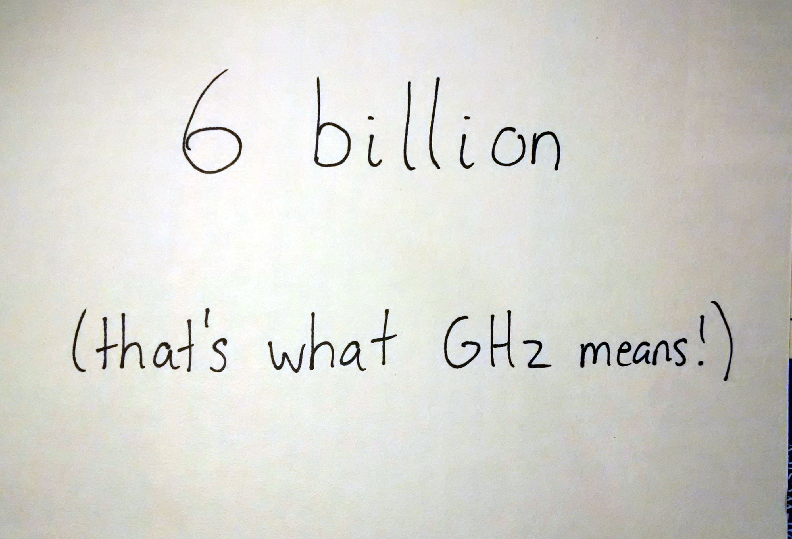 6 billion
(that's what GHz means!)